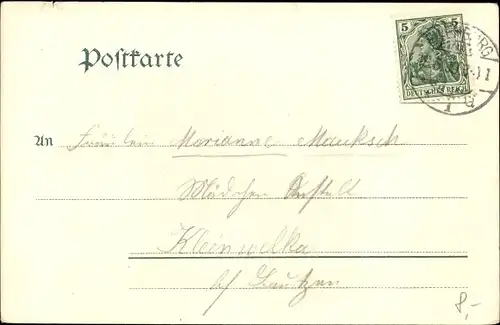 Postkarte
5 5
DEUTSCHES REICH
BURG
An Fräulein Marianne Mauksch
Mädchen Anstalt
Kleinwelka
b/ Bautzen
8,-